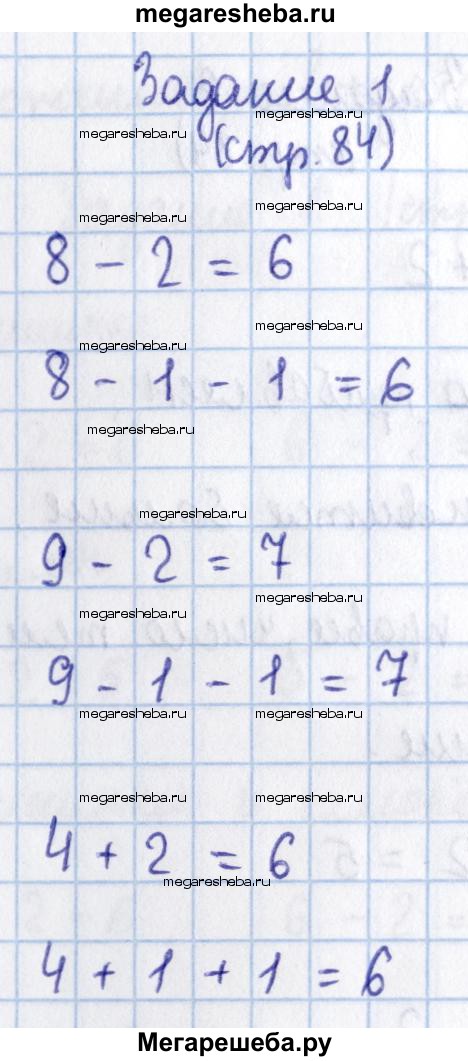 megaresheba.ru
Задание 1
megaresheba.ru
megaresheba.ru
(стр. 84)
megaresheba.ru
megaresheba.ru
8 - 2 = 6
megaresheba.ru
megaresheba.ru
8 - 1 - 1 = 6
megaresheba.ru
megaresheba.ru
9 - 2 = 7
megaresheba.ru
megaresheba.ru
9 - 1 - 1 = 7
megaresheba.ru
megaresheba.ru
megaresheba.ru
megaresheba.ru
4 + 2 = 6
megaresheba.ru
4 + 1 + 1 = 6
Мегарешеба.ру